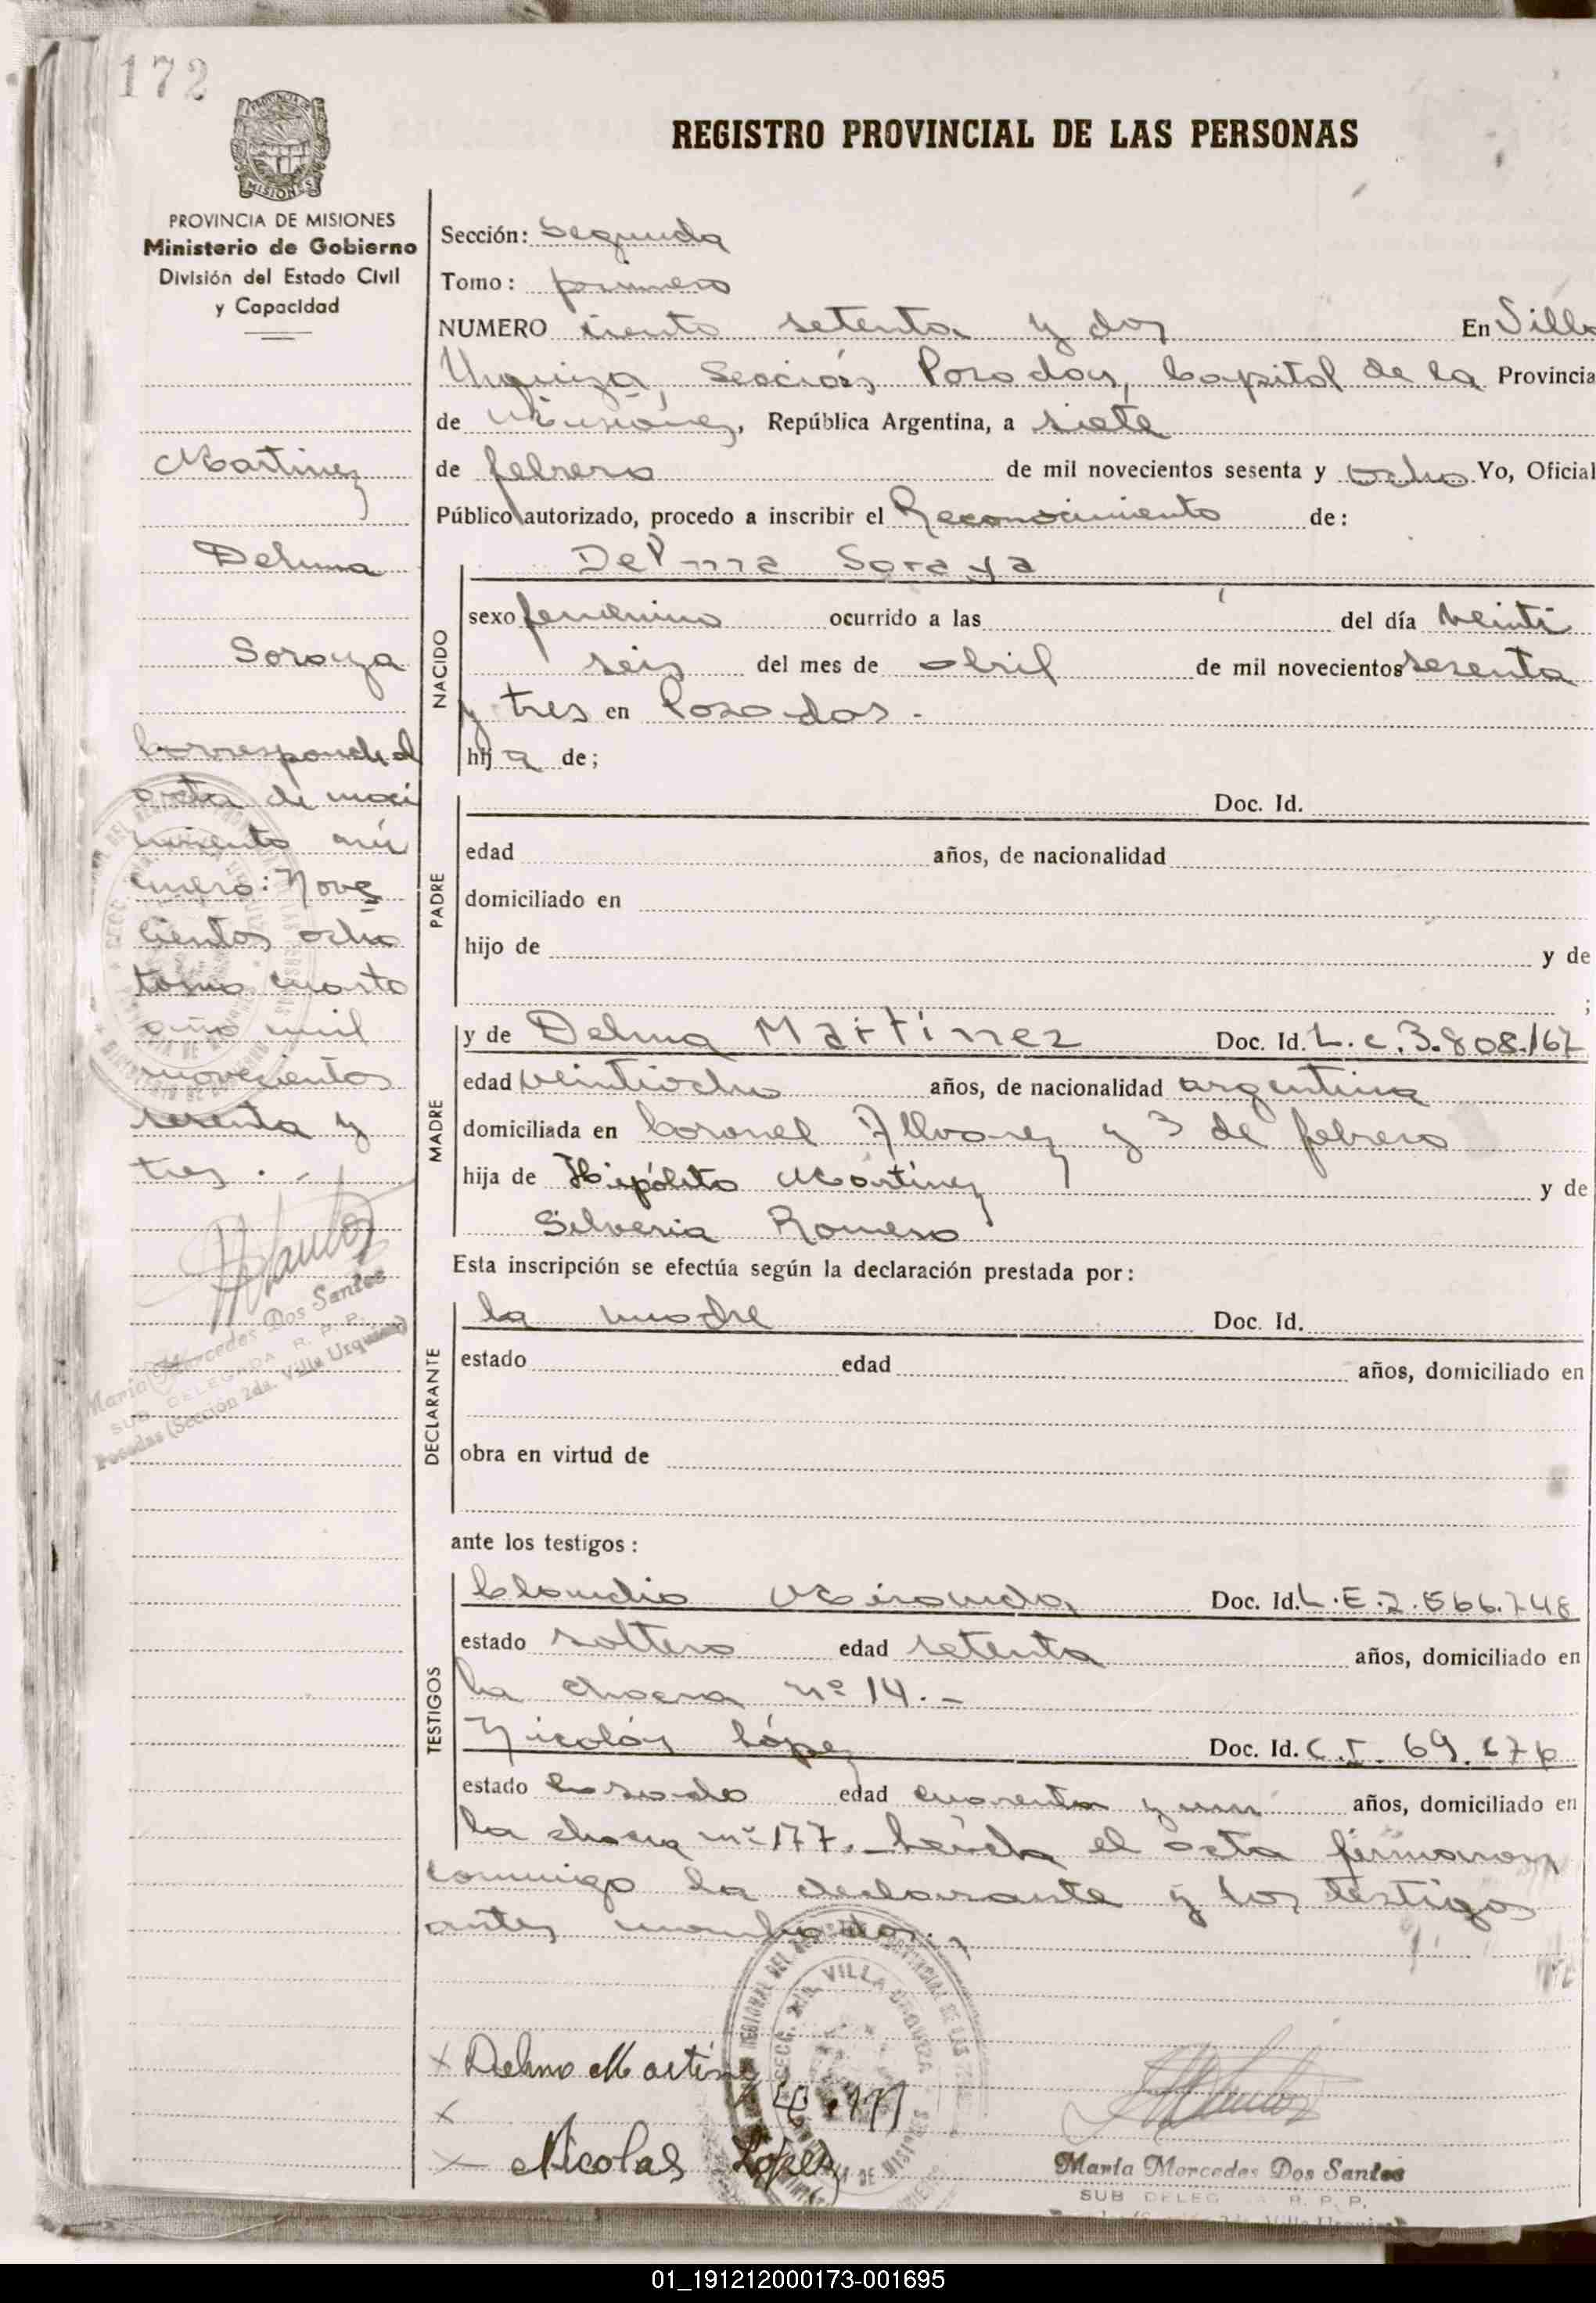 172
PROVINCIA DE MISIONES
Ministerio de Gobierno
División del Estado Civil
y Capacidad
REGISTRO PROVINCIAL DE LAS PERSONAS
Sección: Segunda
Tomo: primero
NUMERO ciento setenta y dos En Villa
Urquiza, Sección, Posadas, Capital de la Provincia
de Misiones, República Argentina, a siete
de febrero de mil novecientos sesenta y ocho Yo, Oficial
Público autorizado, procedo a inscribir el Reconocimiento de:
Martinez
Delma
Soraya
Corresponde al
acta de naci
miento nú
mero: Nove
cientos ocho
tomo cuarto
año mil
novecientos
sesenta y
tres.-
María Mercedes Dos Santos
SUB DELEGADA R. P. P.
Posadas (Sección 2da. Villa Urquiza)
NACIDO
Delma Soraya
sexo femenino ocurrido a las del día veinti
seis del mes de abril de mil novecientos sesenta
y tres en Posadas.-
hij a de;
PADRE
Doc. Id.
edad años, de nacionalidad
domiciliado en
hijo de y de
;
MADRE
y de Delma Martínez Doc. Id. L.c.3.808.167
edad veintiocho años, de nacionalidad argentina
domiciliada en Coronel Alvarez y 3 de febrero
hija de Hipólito Martínez y de
Silveria Romero
Esta inscripción se efectúa según la declaración prestada por:
DECLARANTE
la madre Doc. Id.
estado edad años, domiciliado en
obra en virtud de
ante los testigos:
TESTIGOS
Claudio Miranda Doc. Id. L.E.2.566.748
estado soltero edad setenta años, domiciliado en
la chacra nº 14.-
Nicolás López Doc. Id. C.I. 69.676
estado casado edad cuarenta y un años, domiciliado en
la chacra nº 177.- Leída el acta firmaron
conmigo la declarante y los testigos
antes nombrados.-
X Delma Martínez
X
X Nicolas Lopez
SECC. 2da. VILLA URQUIZA
María Mercedes Dos Santos
SUB DELEG A R. P. P.
01_191212000173-001695